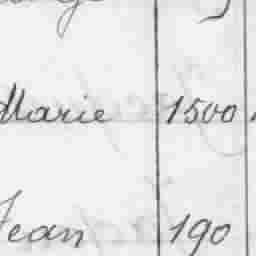 Marie 1500
Jean 190